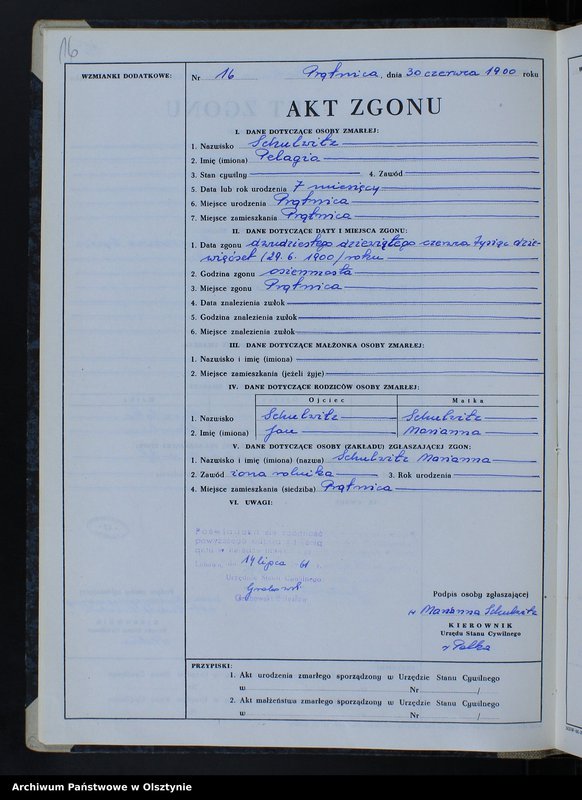 16
WZMIANKI DODATKOWE:
Nr 16 Prątnica, dnia 30 czerwca 1900 roku
AKT ZGONU
I. DANE DOTYCZĄCE OSOBY ZMARŁEJ:
1. Nazwisko Schulwitz
2. Imię (imiona) Pelagia
3. Stan cywilny 4. Zawód
5. Data lub rok urodzenia 7 miesięcy
6. Miejsce urodzenia Prątnica
7. Miejsce zamieszkania Prątnica
II. DANE DOTYCZĄCE DATY I MIEJSCA ZGONU:
1. Data zgonu dwudziestego dziewiątego czerwca tysiąc dzie-
więćset (29. 6. 1900) roku
2. Godzina zgonu osiemnasta
3. Miejsce zgonu Prątnica
4. Data znalezienia zwłok
5. Godzina znalezienia zwłok
6. Miejsce znalezienia zwłok
III. DANE DOTYCZĄCE MAŁŻONKA OSOBY ZMARŁEJ:
1. Nazwisko i imię (imiona)
2. Miejsce zamieszkania (jeżeli żyje)
IV. DANE DOTYCZĄCE RODZICÓW OSOBY ZMARŁEJ:
Ojciec Matka
1. Nazwisko Schulwitz Schulwitz
2. Imię (imiona) Jan Marianna
V. DANE DOTYCZĄCE OSOBY (ZAKŁADU) ZGŁASZAJĄCEJ ZGON:
1. Nazwisko i imię (imiona) (nazwa) Schulwitz Marianna
2. Zawód żona rolnika 3. Rok urodzenia
4. Miejsce zamieszkania (siedziba) Prątnica
VI. UWAGI:
Poświadcza się zgodność
powyższego
14 lipca 61
Urzędu Stanu Cywilnego
Podpis osoby zgłaszającej
Marianna Schulwitz
KIEROWNIK
Urzędu Stanu Cywilnego
PRZYPISKI:
1. Akt urodzenia zmarłego sporządzony w Urzędzie Stanu Cywilnego
w Nr /
2. Akt małżeństwa zmarłego sporządzony w Urzędzie Stanu Cywilnego
w Nr /
Archiwum Państwowe w Olsztynie